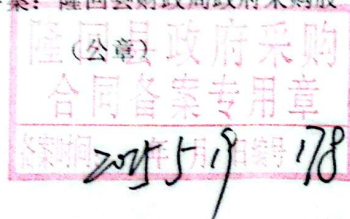 案：隆回县财政局政府采购股
（公章）
隆回县政府采购
合同备案专用章
备案时间 2025年5月19日编号 178